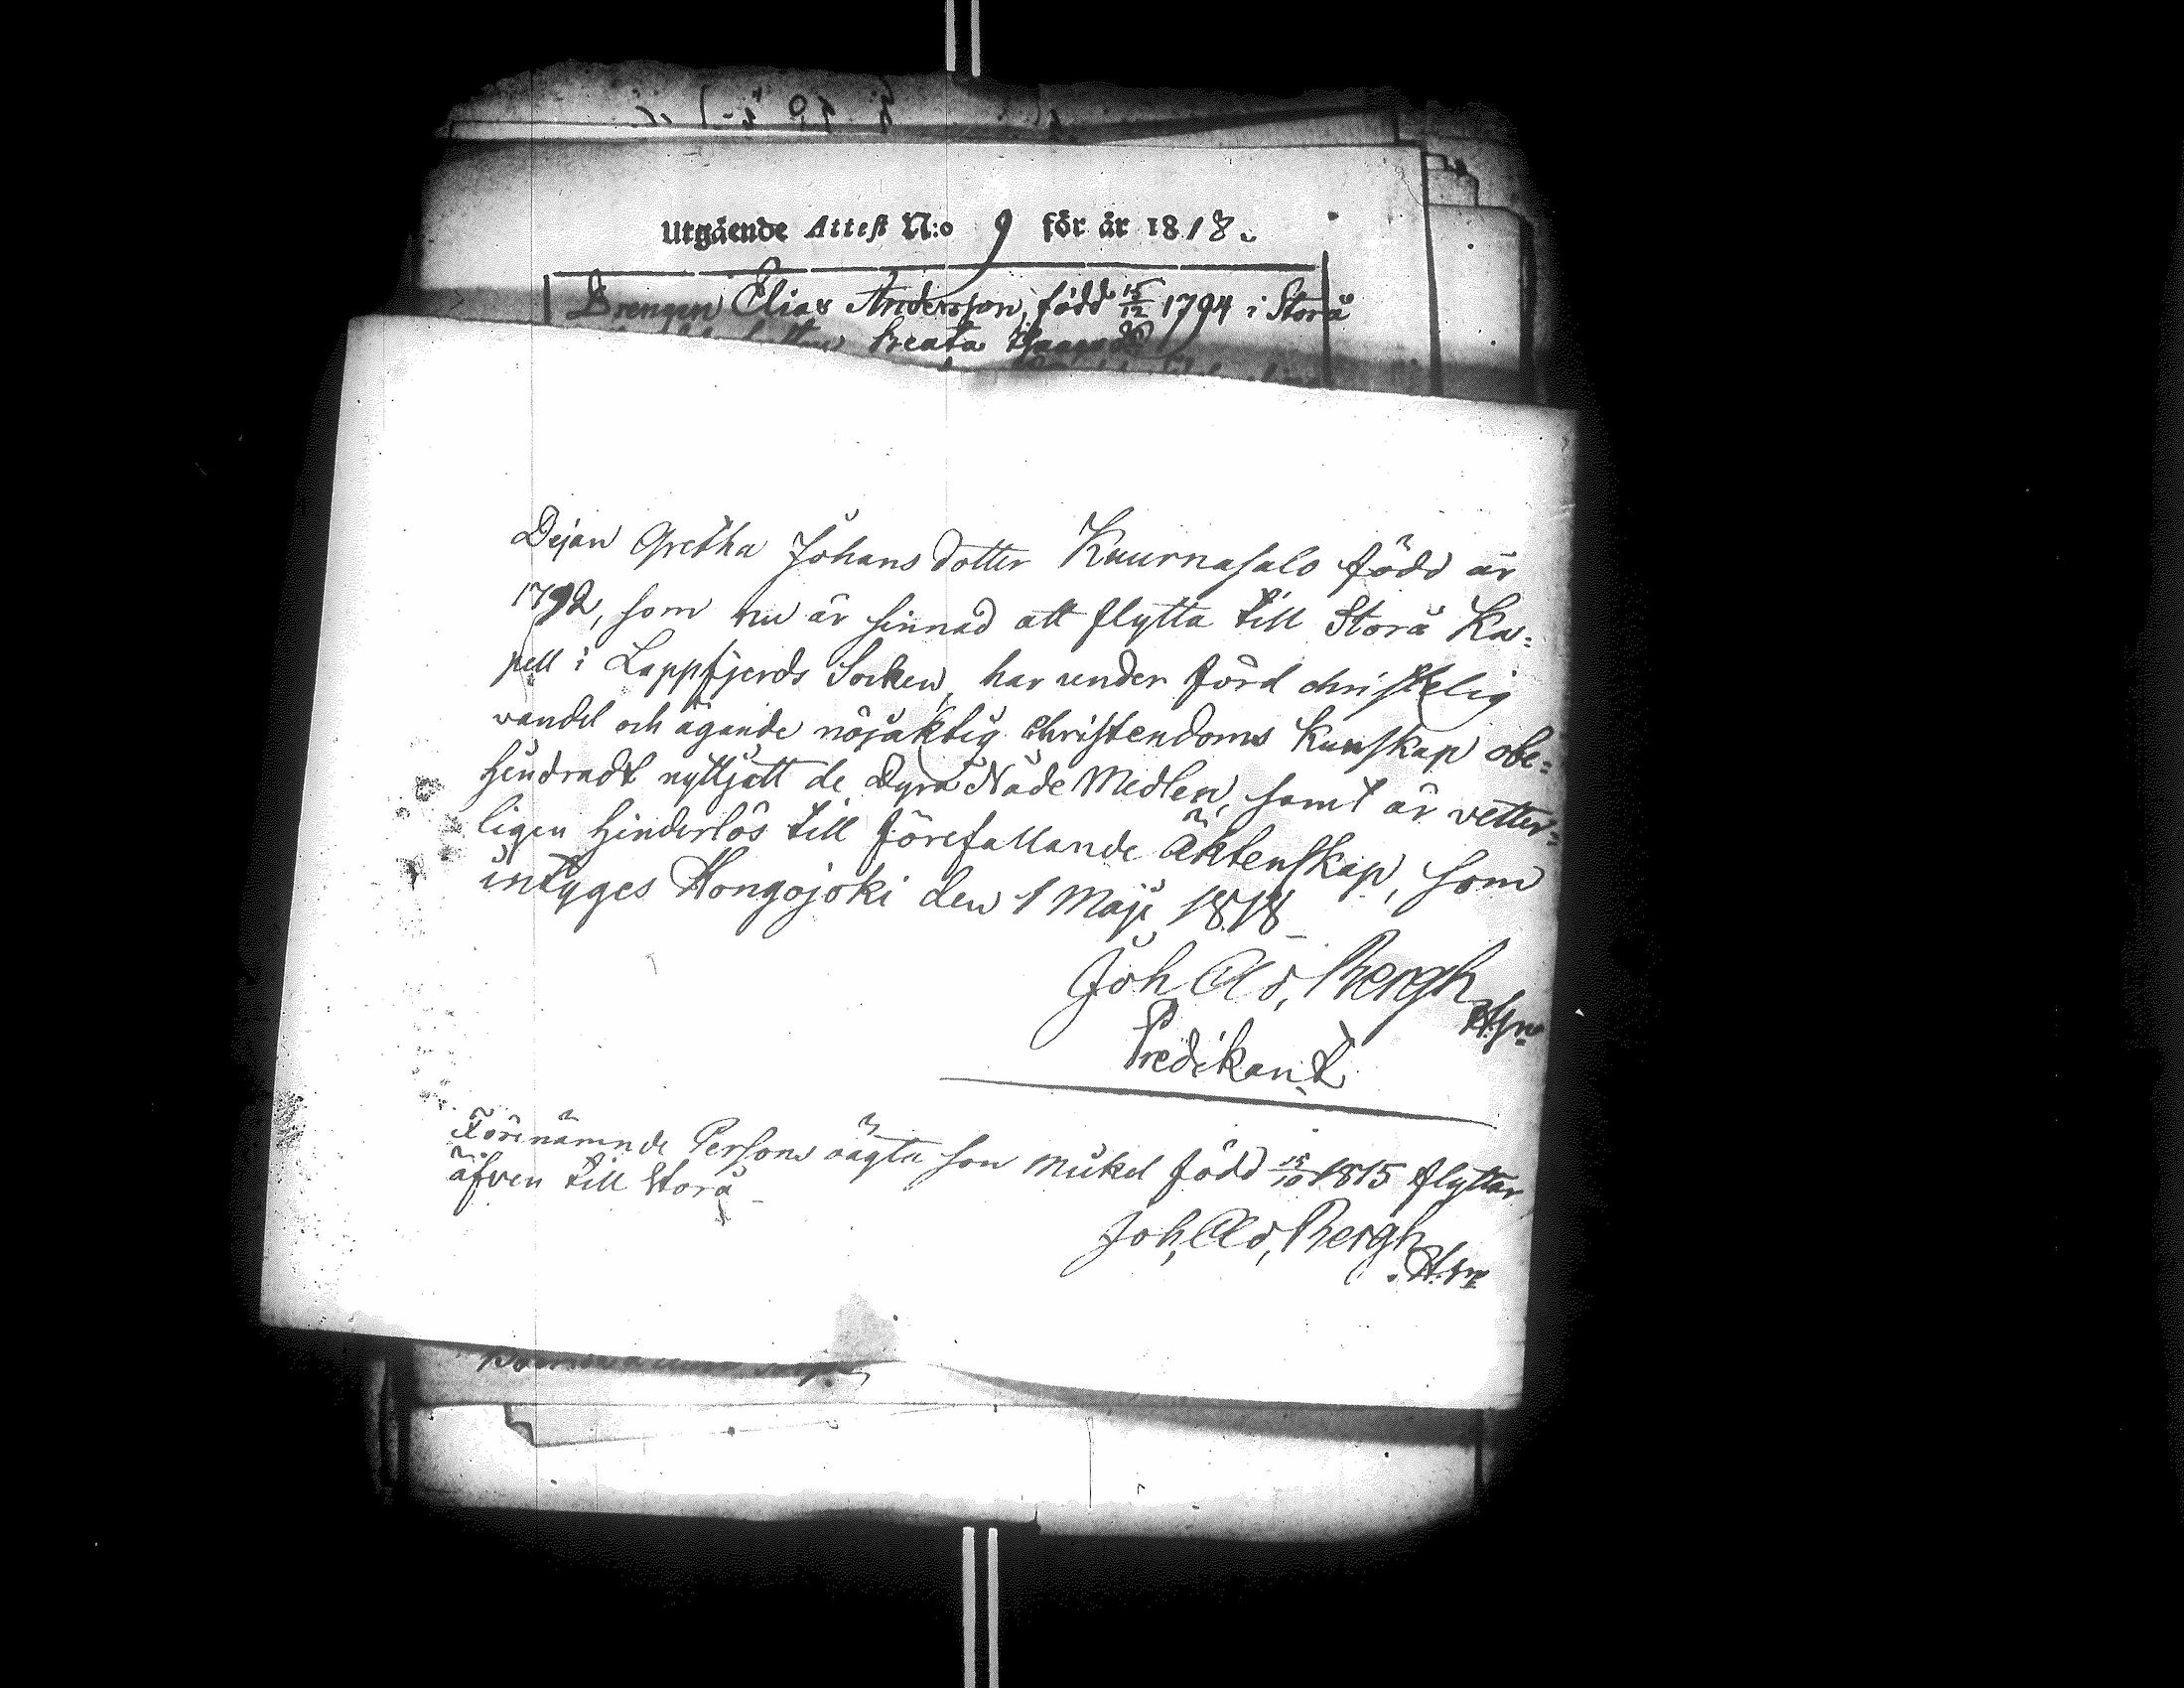 Utgående Attest N:o 9 för år 1818.
Drengen Elias Andersson, född 15/12 1794 i Storå
Dejan Gretha Johans dotter Kuurnasalo född år
1792, som nu är sinnad att flytta till Storå Ka=
pell i Lappfjerds Socken, har under förd christelig
vandel och ägande nöjaktig Christendoms Kunskap obe=
hindradt nyttjatt de dyra Nåde Medlen, samt är vetter=
ligen hinderlös till förefallande Äktenskap, som
intyges Hongojoki den 1 Maji 1818
Joh Ad, Bergh
Predikant
Förenämnde Persons oägta son Mikel född 15/10 1815 flyttar
äfven till Storå
Joh, Ad, Bergh